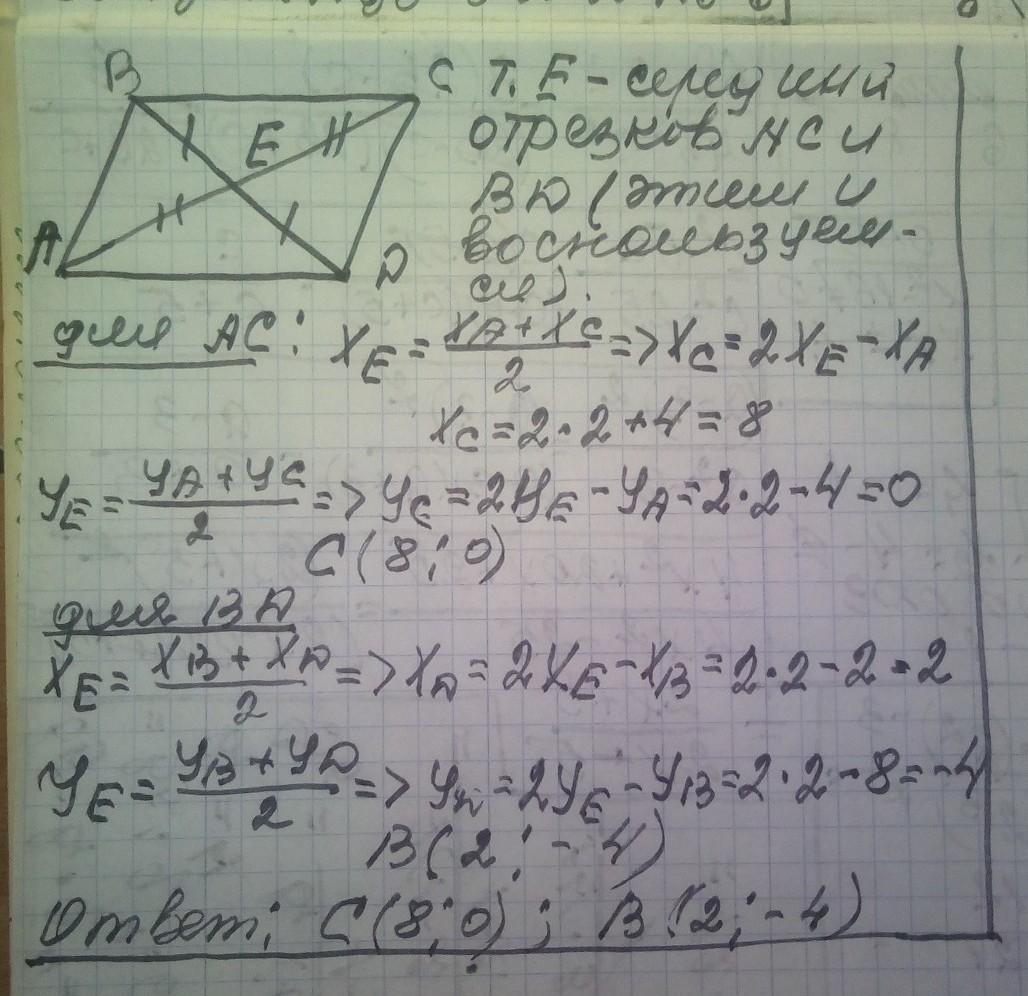 B
C
E
A
D
т. E - середина
отрезков AC и
BD (этим и
воспользуем-
ся).
для AC: XE = (XA + XC)/2 => XC = 2XE - XA
XC = 2·2 + 4 = 8
YE = (YA + YC)/2 => YC = 2YE - YA = 2·2 - 4 = 0
C(8; 0)
для BD
XE = (XB + XD)/2 => XD = 2XE - XB = 2·2 - 2 = 2
YE = (YB + YD)/2 => YD = 2YE - YB = 2·2 - 8 = -4
B(2; -4)
Ответ: C(8; 0); B(2; -4)